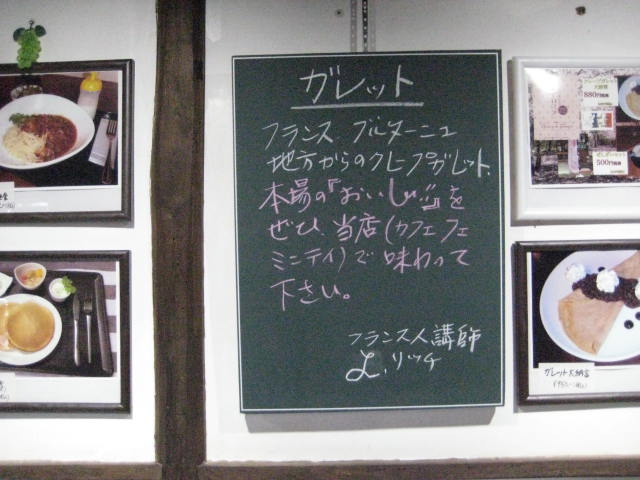 ガレット
フランス、ブルターニュ
地方からのクレープガレット、
本場の『おいしい』を
ぜひ、当店(カフェフェ
ミニテイ)で味わって
下さい。
フランス人講師
L.リッチ
880円
ぜんざいセット
500円
ガレット大納言